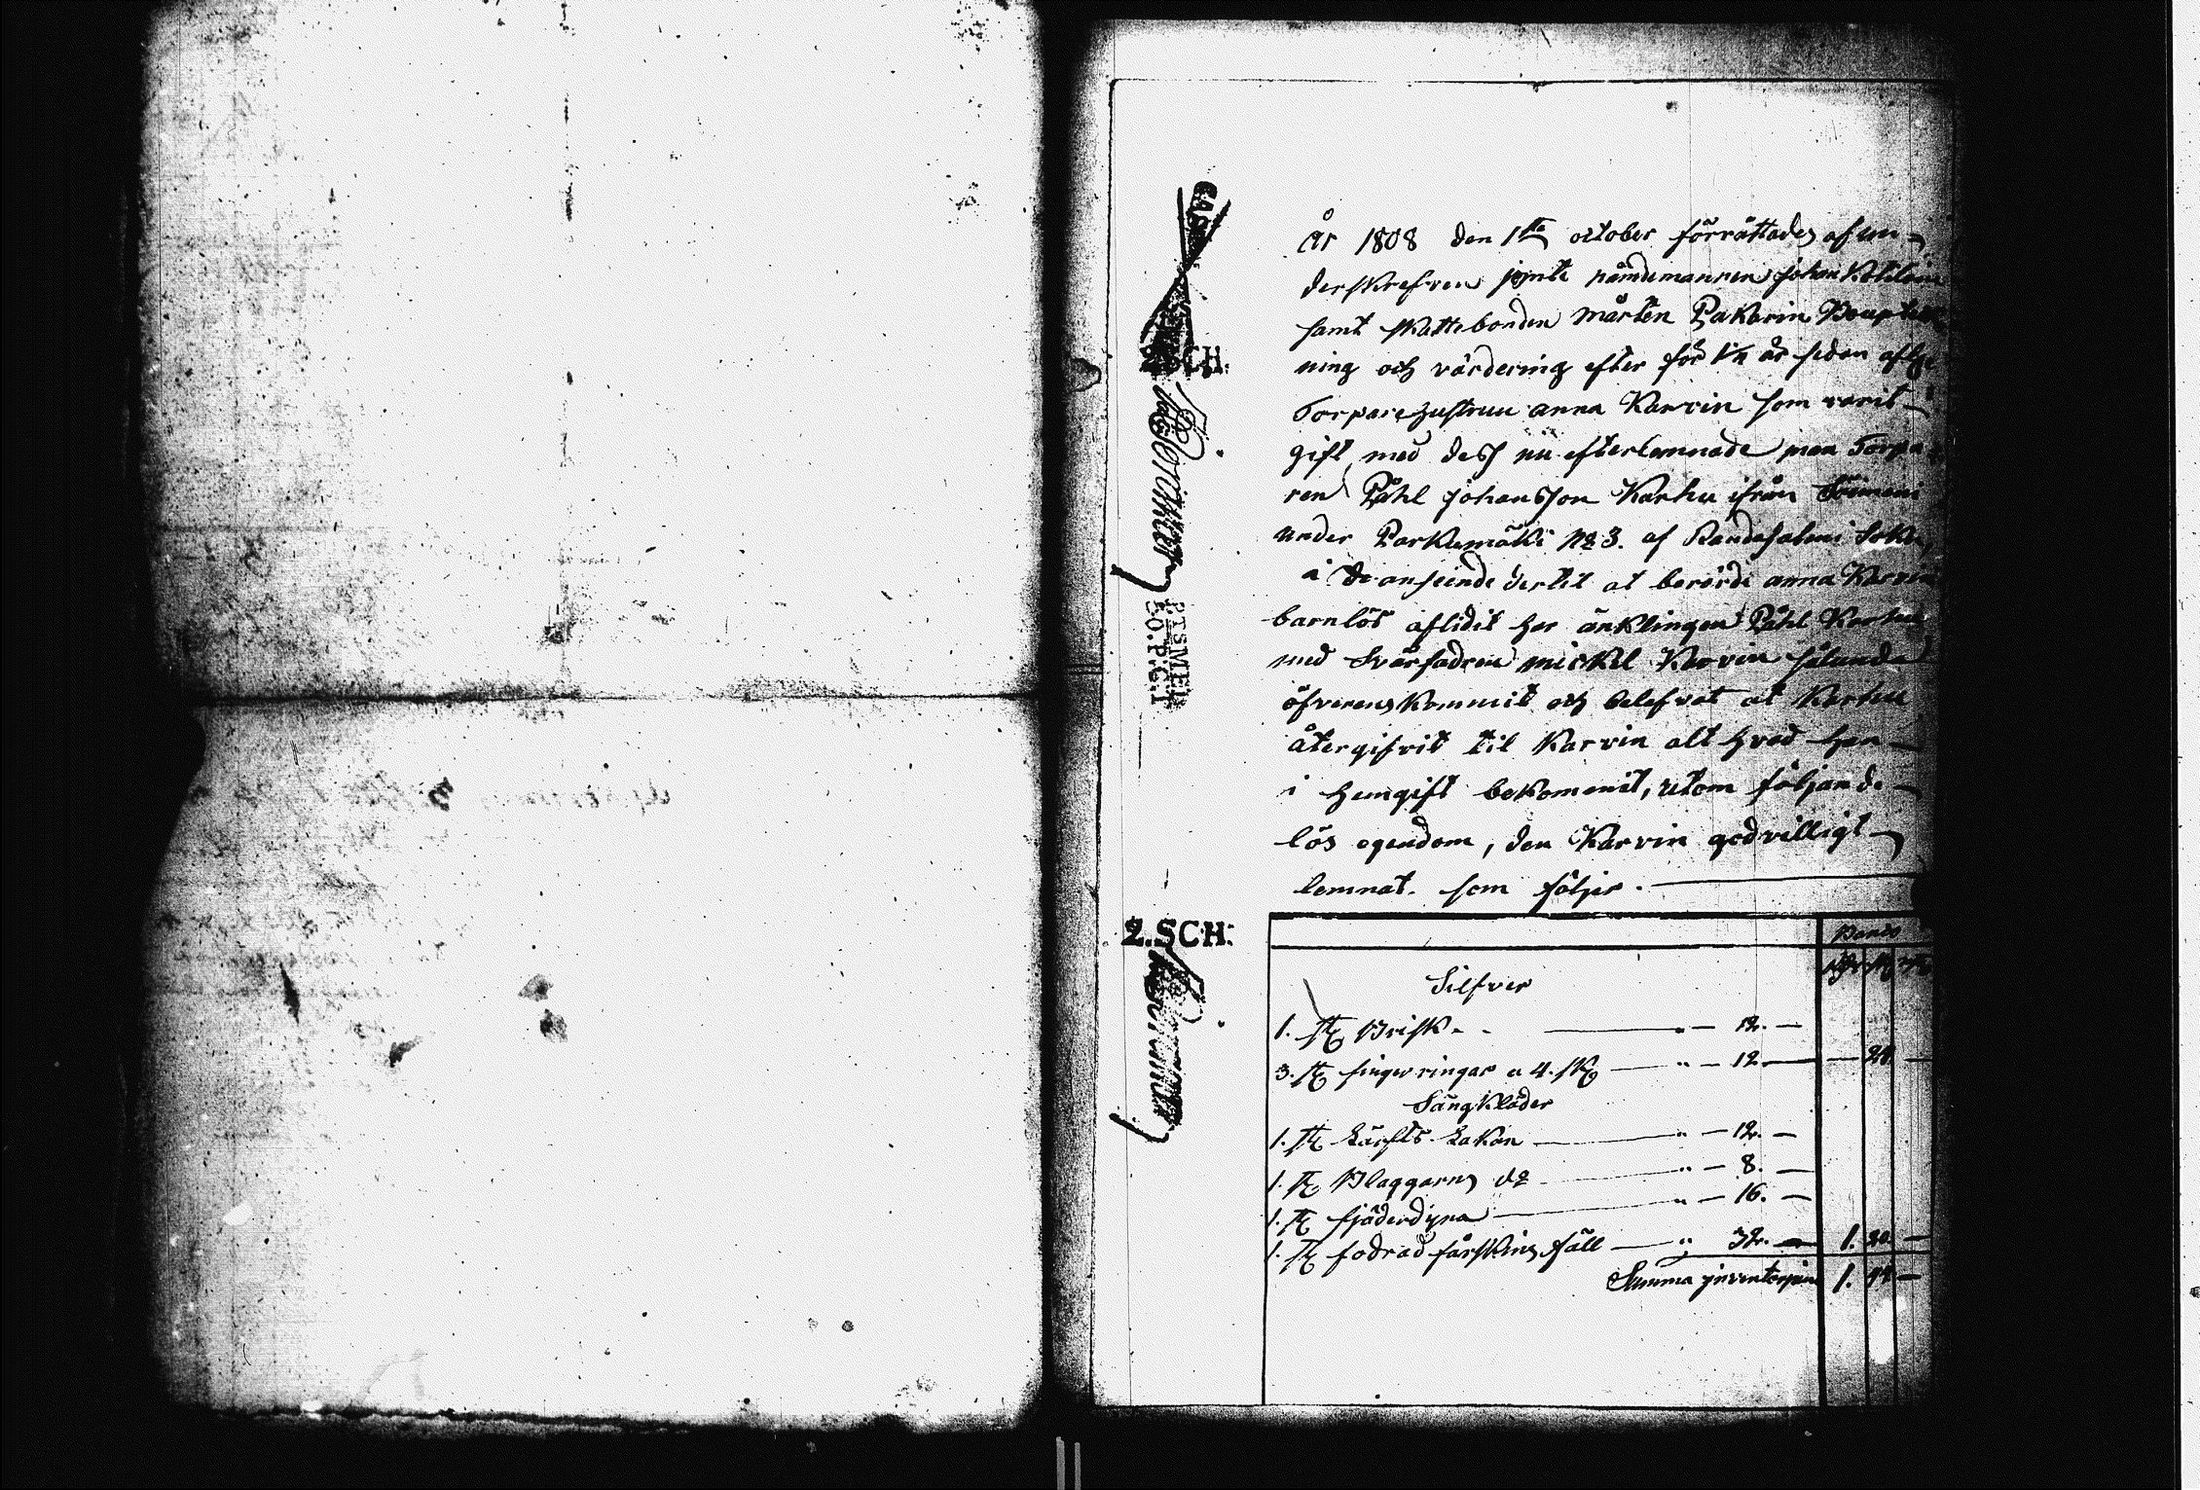 År 1808 den 1ste october förrättades af un-
derskrefven jemte nämdemannen Johan
samt skattebonden Mårten Pakarin Boupteck
ning och värdering efter för 1½ år sedan afledne
Torpare hustrun anna Karvin som varit
gift med dess nu efterlemnade man Torpa
ren Påhl Johansson Karhu ifrån
under Parkumäki No 3. af Randasalmi Sokn,
i de anseende dertil at berörde anna Karvin
barnlös aflidit har änklingen Påhl Karhu
med Svärfadren Mickel Karvin sålunda
öfverenskommit och belefvat at Karhu
återgifvit til Karvin alt hvad han
i hemgift bekommit, utom följande
lös egendom, den Karvin godvilligt
lemnat. som följer.
2.SCH.
Banco
Silfver
1. st. Brisk - - " - 12. -
3. st. fingerringar a 4. sk " - 12 - - 24. -
Sängkläder
1. st. Lärfts Lakan " - 12. -
1. st. Blaggarns do " - 8. -
1. st. fjäderdyna " - 16. -
1. st. fodrad fårskins fäll " 32. - 1. 20. -
Summa inventarium 1. 44 -